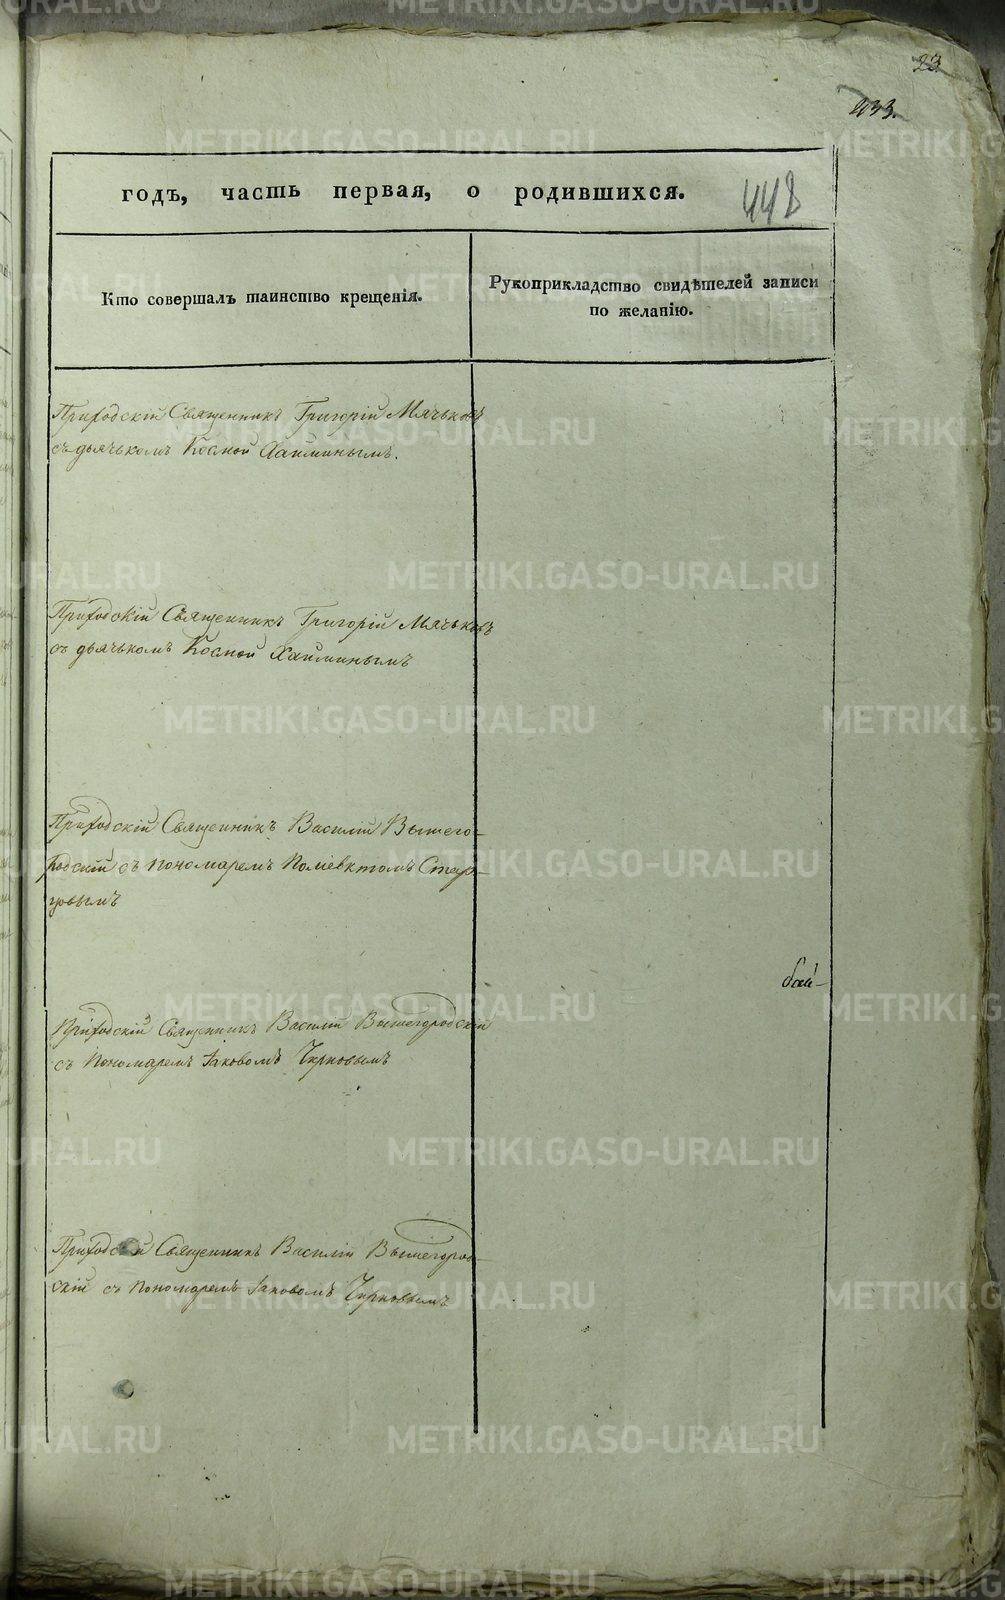 23
433.
годъ, часть первая, о родившихся.
448
Кто совершалъ таинство крещенія.
Рукоприкладство свидѣтелей записи
по желанію.
Приходскій Священникъ Григорій Мячьковъ
съ дьячькомъ Космой Хайминымъ.
Приходскій Священникъ Григорій Мячьковъ
съ дьячькомъ Космой Хайминымъ
Приходскій Священникъ Василій Вышего-
родскій съ пономаремъ Поліевктомъ Стар-
цовымъ
Приходскій Священникъ Василій Вышегородскій
съ Пономаремъ Іаковомъ Чирковымъ
Приходскій Священникъ Василій Вышегород-
скій съ Пономаремъ Іаковомъ Чирковымъ
METRIKI.GASO-URAL.RU